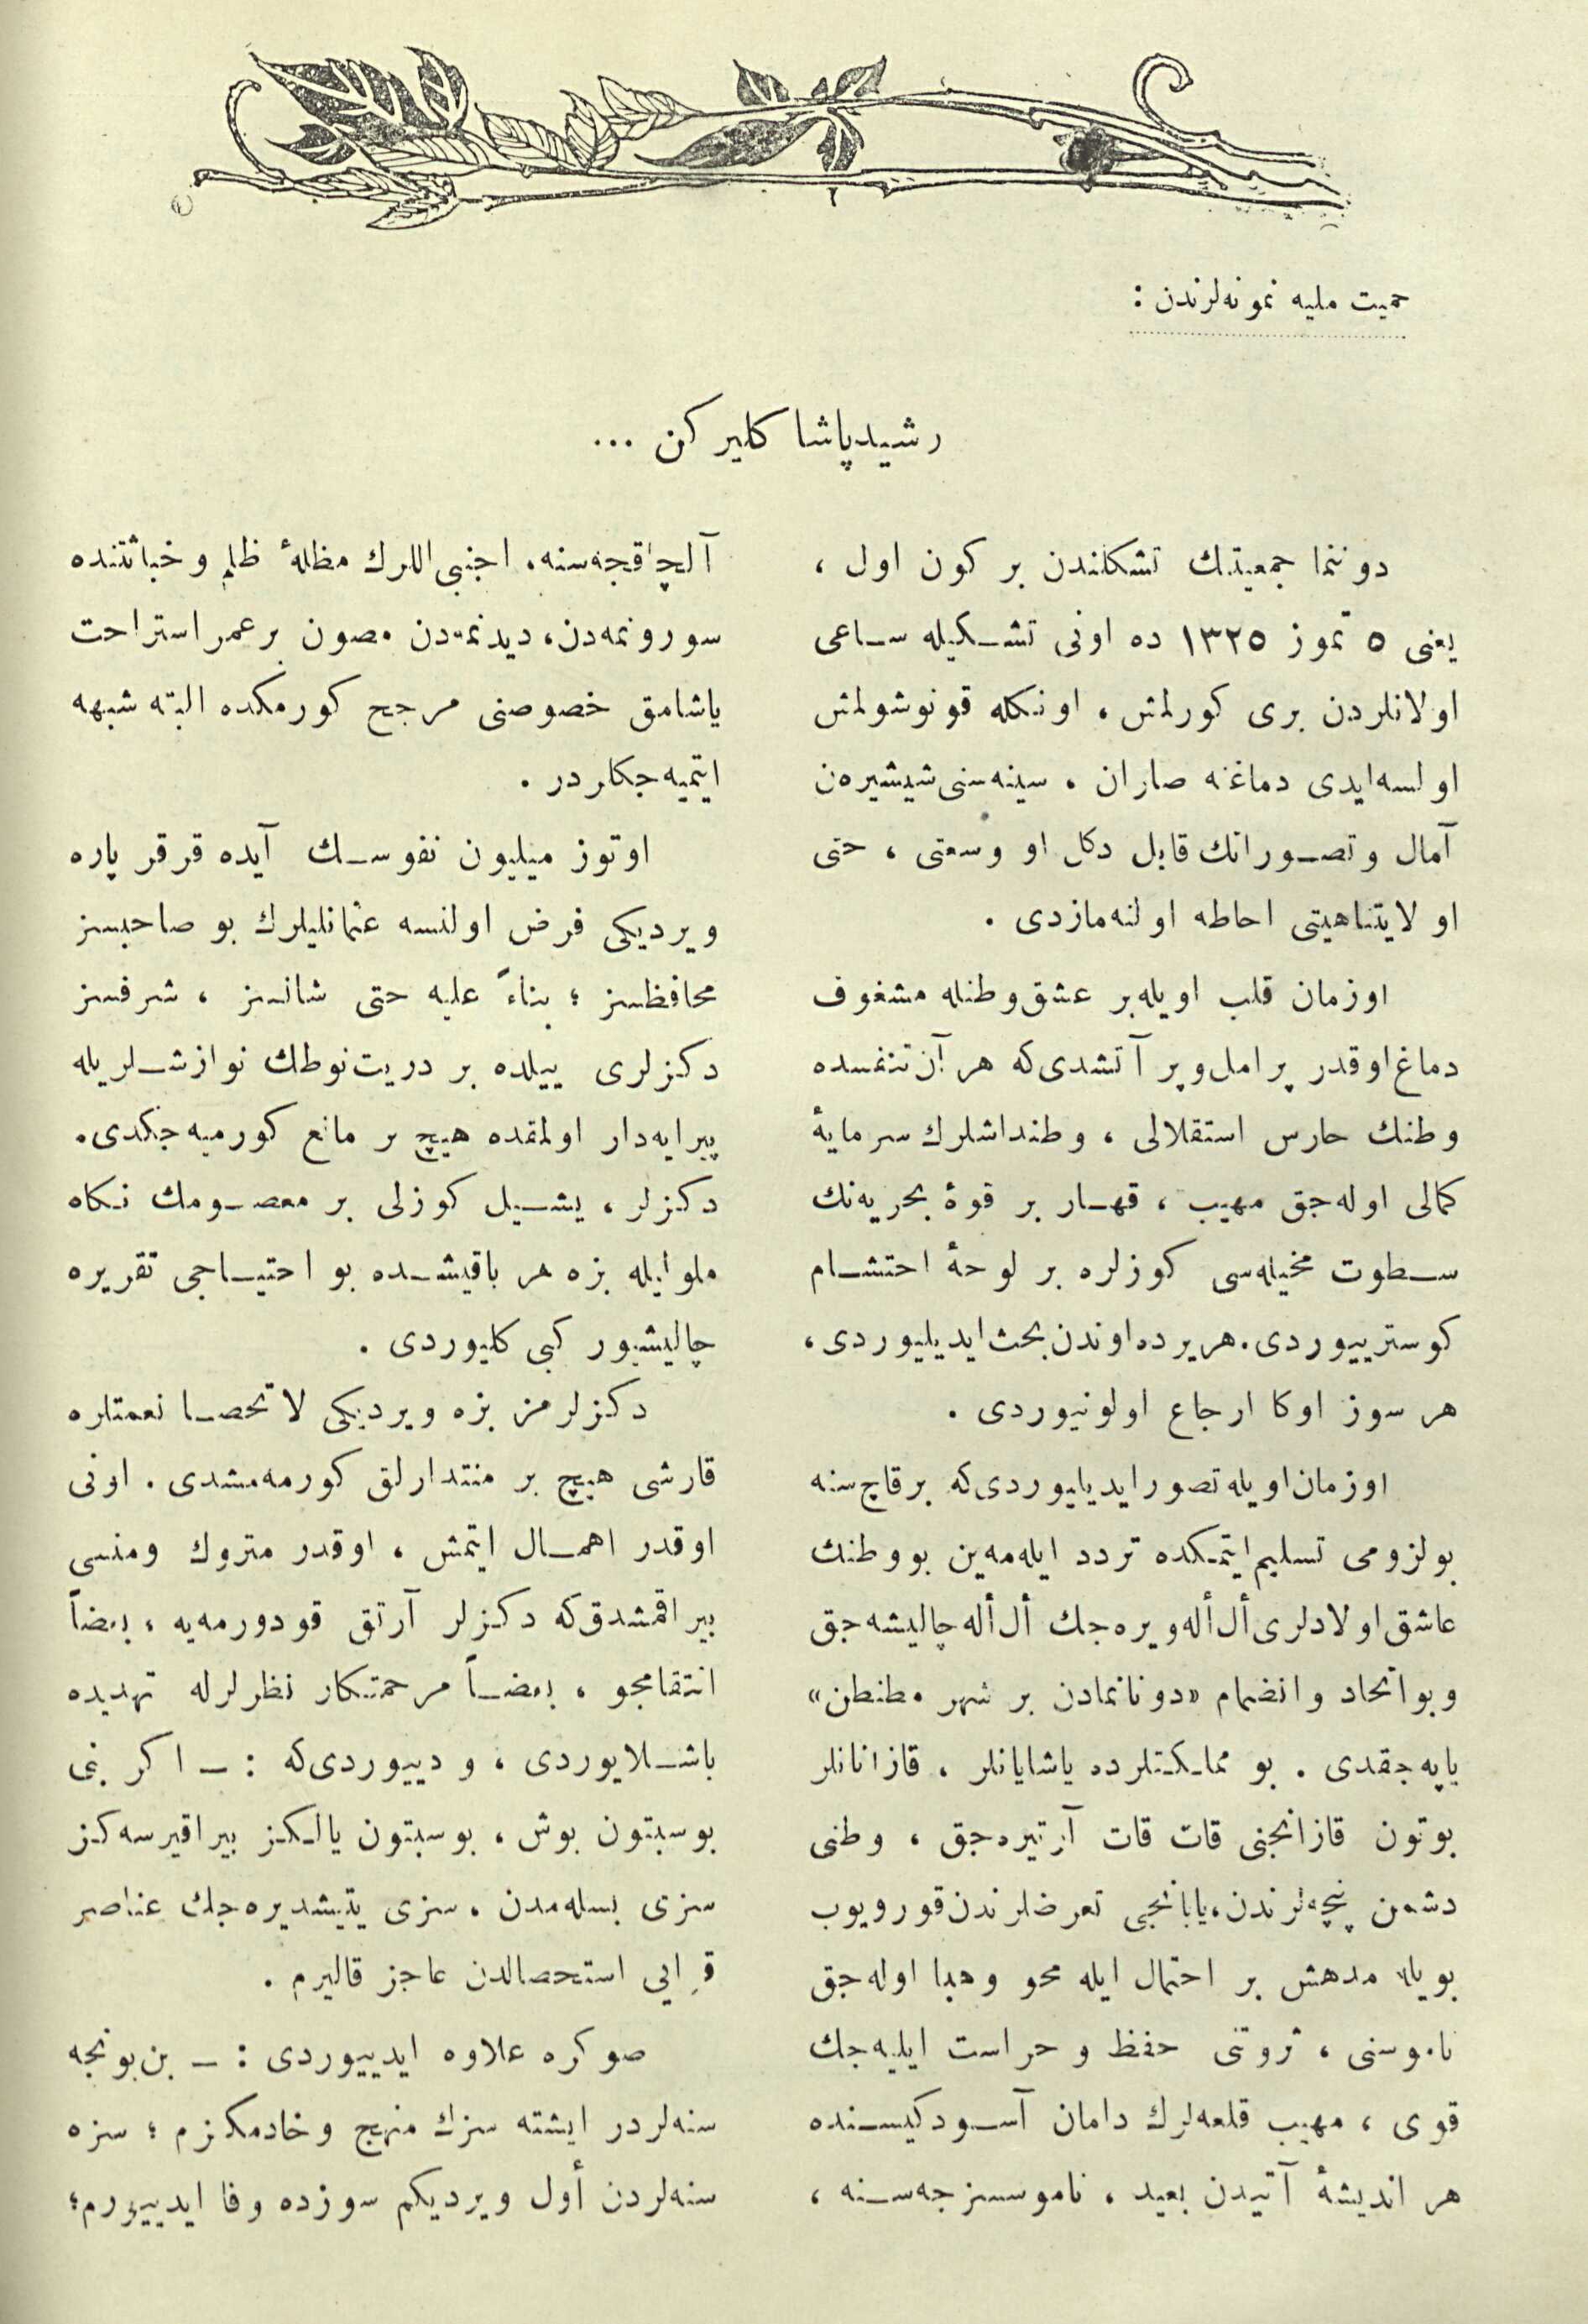 حمیت ملیه نمونه‌لرندن :
رشید پاشا کلیرکن ...
دوننما جمعیتنك تشكلندن بر كون اول ،
یعنی ٥ تموز ١٣٢٥ ده اونی تشكیله ساعی
اولانلردن بری كورلمش ، اونكله قونوشولمش
اولسه‌ایدی دماغنه صاران ، سینه‌سنی شیشیره‌ن
آمال و تصوراتك قابل دكل او وسعتی ، حتی
او لایتناهیتی احاطه اولنه‌مازدی .
اوزمان قلب اویله بر عشق وطنله مشغوف
دماغ اوقدر پر امل و پر آتشدی‌كه هر آن تنفسده
وطنك حارس استقلالی ، وطنداشلرك سرمایهٔ
كمالی اوله‌جق مهیب ، قهار بر قوهٔ بحریه‌نك
سطوت مخیله‌سی كوزلره بر لوحهٔ احتشام
كوستریيوردی. هر یرده اوندن بحث ایدیلیوردی،
هر سوز اوكا ارجاع اولونیوردی .
اوزمان اویله تصور ایدیلیوردی‌كه برقاچ سنه
بو لزومی تسلیم ایتمكده تردد ایله‌مه‌ین بو وطنك
عاشق اولادلری أل أله ویره‌جك أل أله چالیشه‌جق
و بو اتحاد و انضمام «دونانمادن بر شهر مطنطن»
یاپه‌جقدی . بو مملكتلرده یاشایانلر ، قازانانلر
بوتون قازانجنی قات قات آرتیره‌جق ، وطنی
دشمن پنچه‌لرندن، یابانجی تعرضلرندن قورویوب
بویله مدهش بر احتمال ایله محو و هبا اوله‌جق
ناموسنی ، ثروتنی حفظ و حراست ایلیه‌جك
قوی ، مهیب قلعه‌لرك دامان آسودكیسنده
هر اندیشهٔ آتیدن بعید ، ناموسسزجه‌سنه ،
آلچاقجه‌سنه، اجنبی اللرك مظلهٔ ظلم و خباثتنده
سورونمه‌دن، دیدنمه‌دن مصون بر عمر استراحت
یاشامق خصوصنی مرجح كورمكده البته شبهه
ایتمیه‌جكلردر .
اوتوز میلیون نفوسك آیده قرقر پاره
ویردیكی فرض اولنسه عثمانلیلرك بو صاحبسز
محافظسز ؛ بناءً علیه حتی شانسز ، شرفسز
دكزلری ییلده بر دریت‌نوطك نوازشلریله
پیرایه‌دار اولمقده هیچ بر مانع كورمیه‌جكدی.
دكزلر ، یشیل كوزلی بر معصومك نكاه
ملولیله بزه هر باقیشده بو احتیاجی تقریره
چالیشیور كبی كلیوردی .
دكزلرمز بزه ویردیكی لاتحصا نعمتلره
قارشی هیچ بر منتدارلق كورمه‌مشدی . اونی
اوقدر اهمال ایتمش ، اوقدر متروك و منسی
بیراقمشدق‌كه دكزلر آرتق قودورمه‌یه ، بعضاً
انتقامجو ، بعضاً مرحمتكار نظرلرله تهدیده
باشلایوردی ، و دییوردی‌كه : ـ اكر بنی
بوسبتون بوش ، بوسبتون یالكز بیراقیرسه‌كز
سزی بسله‌مدن ، سزی یتیشدیره‌جك عناصر
قوایی استحصالدن عاجز قالیرم .
صوكره علاوه ایدییوردی : ـ بن بونجه
سنه‌لردر ایشته سزك منهج و خادمكزم ؛ سزه
سنه‌لردن أول ویردیكم سوزده وفا ایدییورم؛